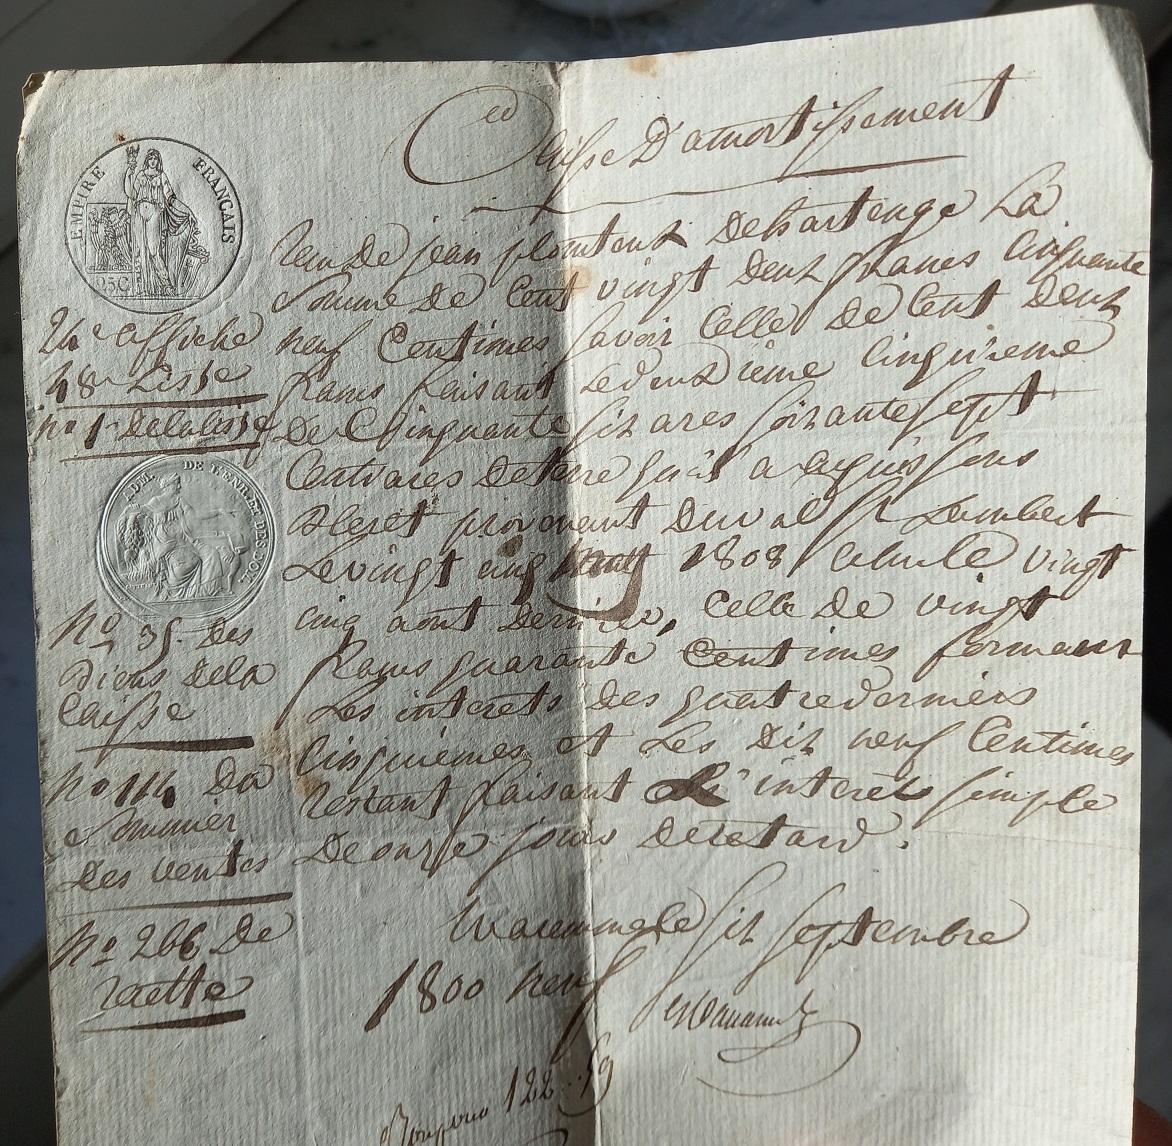 Caisse D'amortissement
EMPIRE FRANÇAIS
25C
Recu de jean Debartenge La
Somme de Cent vingt deux francs Cinquante
neuf Centimes Savoir Celle de Cent deux
francs faisant Le deuxieme Cinquieme
De Cinquante Six ares Soixante Sept
Centiares de terre qu'il a acquis sous
provenant du val St Lambert
Le vingt cinq 1808 echu le vingt
cinq aout dernier, Celle de vingt
francs quarante Centimes formant
Les interets des quatre derniers
Cinquiemes et Les Dix neuf Centimes
restant faisant L'interet simple
De onze jours de retard.
24e affiche
48e Lisse
no 1 de la lisse
ADM. DE L'ENR. ET DES DOM.
No 35 des
Biens de la
Caisse
No 114 Du
Sommier
Des ventes
No 266 De
recette
Waremme le six Septembre
1800 neuf
122..59